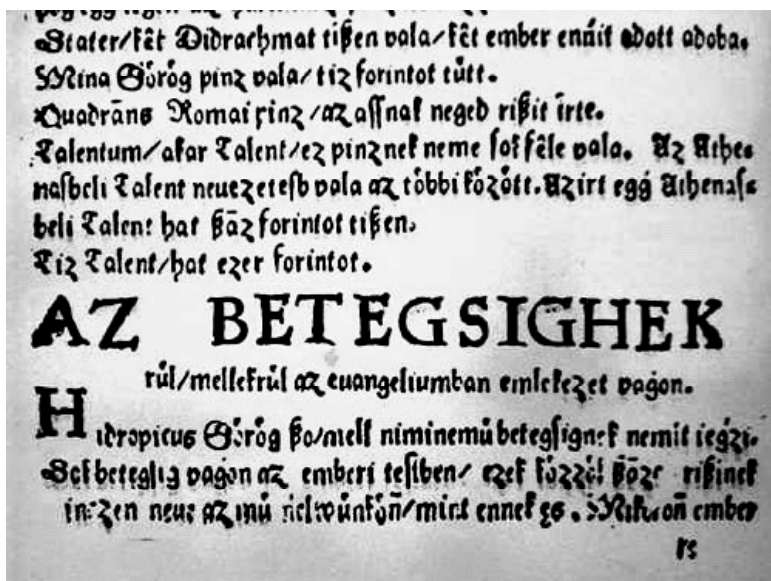 Stater/két Didrachmat tißen vala/két ember enńit adott adoba.
Mina Görög pinz vala/tiz forintot tűtt.
Quadrãns Romai pinz/az assnak neged rißit îrte.
Talentum/akar Talent/ez pinznek neme sok féle vala. Az Athe⸗
nasbeli Talent neuezetesb vala az többi között. Azirt egǵ Athenas⸗
beli Talent hat ßãz forintot tißen.
Tiz Talent/hat ezer forintot.
AZ BETEGSIGHEK
rűl/mellekrűl az euangeliumban emlekezet vaǵon.
Hidropicus Görög ßo/mell niminemű betegsignek nemit ieǵzi.
Sok betegsig vaǵon az emberi testben/ ezek közzöl rißinek
neue az mű mint ennek es. ember
rs